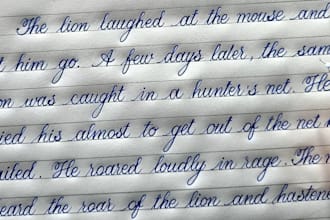 The lion laughed at the mouse and
t him go. A few days later, the sam
on was caught in a hunter's net. He
ied his almost to get out of the net
ailed. He roared loudly in rage. The
eard the roar of the lion and hasten